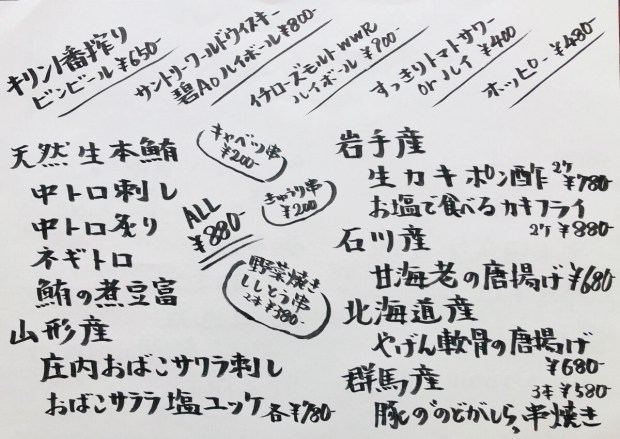 キリン一番搾り
ビンビール ¥650-
サントリーワールドウィスキー
碧Ao ハイボール ¥800-
イチローズモルト WWR
ハイボール ¥900-
すっきりトマトサワー
or ハイ ¥400
ホッピー ¥480-
天然生本鮪
中トロ刺し
中トロ炙り
ネギトロ
鮪の煮豆富
ALL
¥880-
山形産
庄内おばこサワラ刺し
おばこサララ塩ユッケ 各¥780-
キャベツ串
¥200-
きゅうり串
¥200
野菜焼き
ししとう串
2本 ¥380-
岩手産
生カキポン酢 2ケ ¥780-
お塩で食べるカキフライ
2ケ ¥880-
石川産
甘海老の唐揚げ ¥680
北海道産
やげん軟骨の唐揚げ
¥680-
群馬産
3本 ¥580-
豚の"のどがしら"串焼き